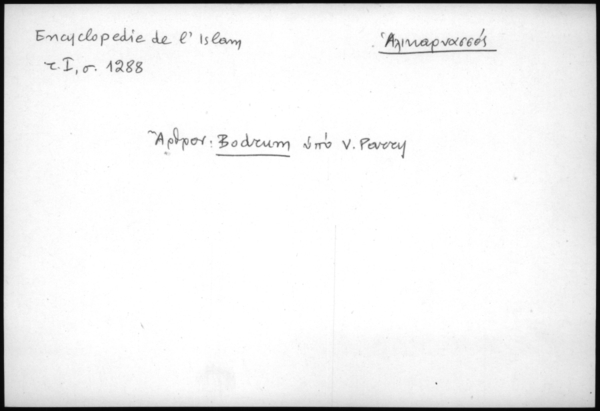 Encyclopedie de l' Islam
Ἁλικαρνασσός
τ. I, σ. 1288
Ἄρθρον: Bodrum ὑπό V. Parry